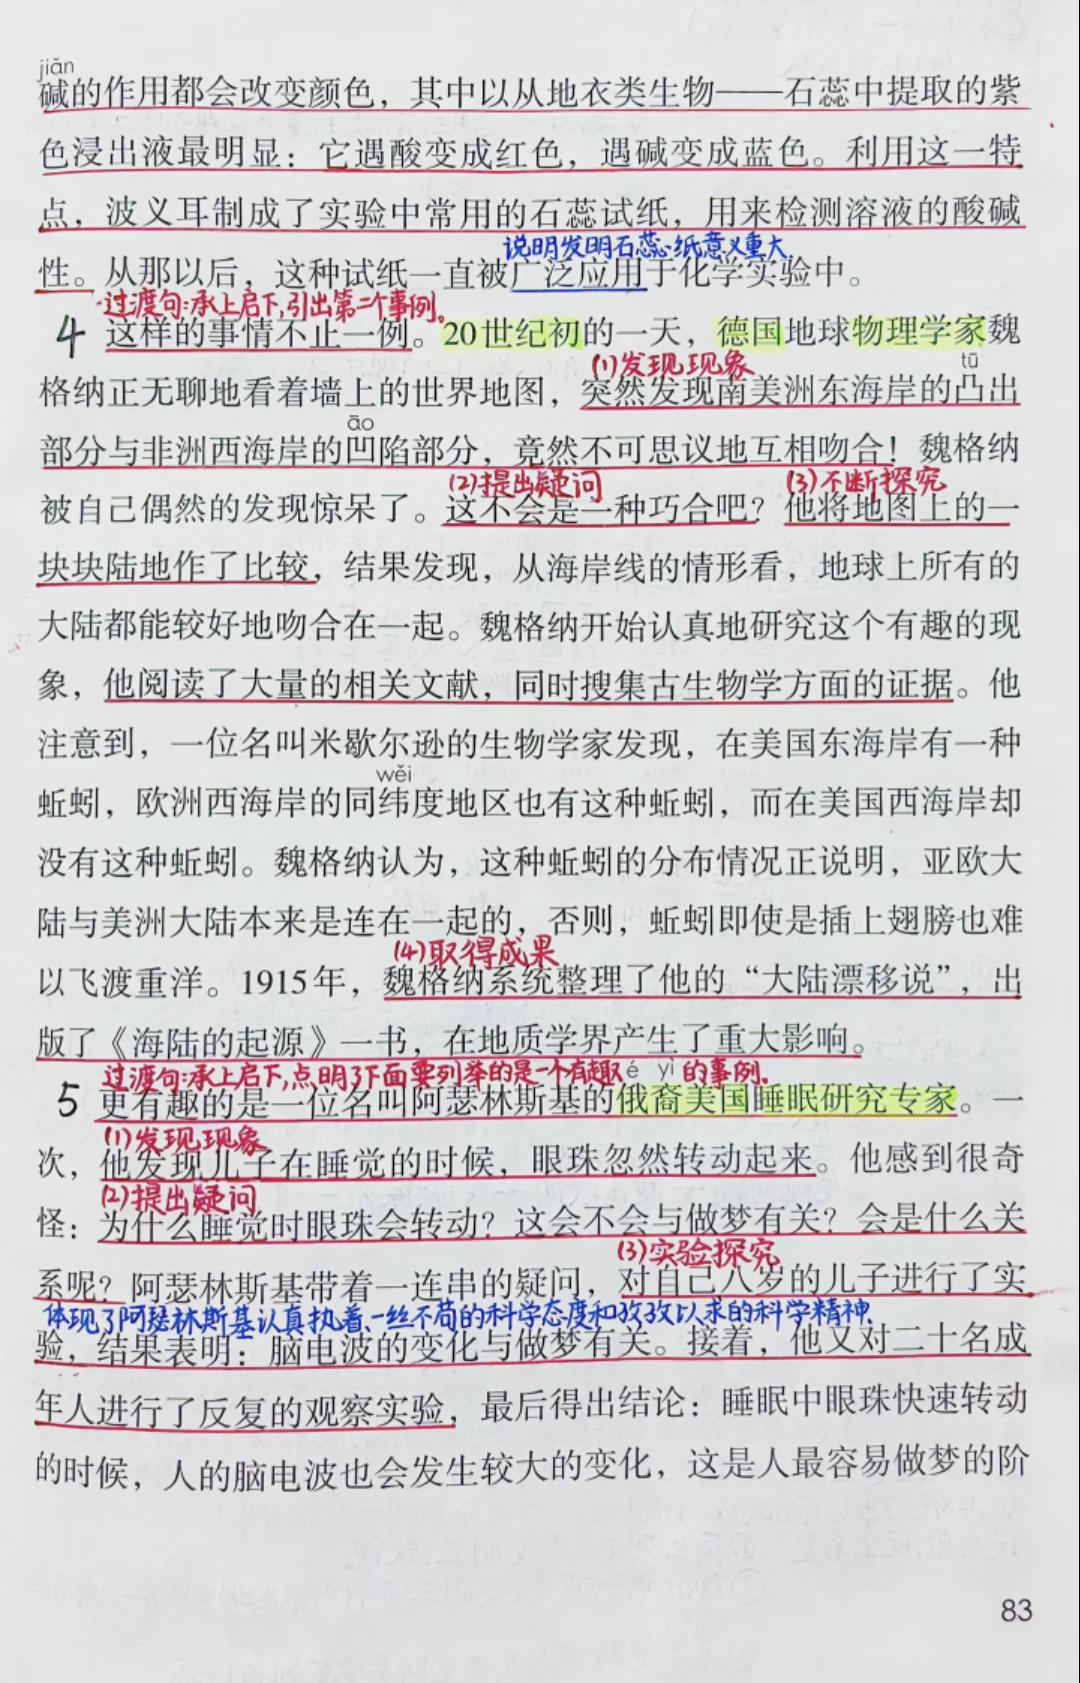 jiǎn
碱的作用都会改变颜色，其中以从地衣类生物——石蕊中提取的紫
色浸出液最明显：它遇酸变成红色，遇碱变成蓝色。利用这一特
点，波义耳制成了实验中常用的石蕊试纸，用来检测溶液的酸碱
说明发明石蕊试纸意义重大
性。从那以后，这种试纸一直被广泛应用于化学实验中。
过渡句:承上启下,引出第二个事例。
4 这样的事情不止一例。20世纪初的一天，德国地球物理学家魏
(1)发现现象 tū
格纳正无聊地看着墙上的世界地图，突然发现南美洲东海岸的凸出
āo
部分与非洲西海岸的凹陷部分，竟然不可思议地互相吻合！魏格纳
(2)提出疑问 (3)不断探究
被自己偶然的发现惊呆了。这不会是一种巧合吧？他将地图上的一
块块陆地作了比较，结果发现，从海岸线的情形看，地球上所有的
大陆都能较好地吻合在一起。魏格纳开始认真地研究这个有趣的现
象，他阅读了大量的相关文献，同时搜集古生物学方面的证据。他
注意到，一位名叫米歇尔逊的生物学家发现，在美国东海岸有一种
wěi
蚯蚓，欧洲西海岸的同纬度地区也有这种蚯蚓，而在美国西海岸却
没有这种蚯蚓。魏格纳认为，这种蚯蚓的分布情况正说明，亚欧大
陆与美洲大陆本来是连在一起的，否则，蚯蚓即使是插上翅膀也难
(4)取得成果
以飞渡重洋。1915年，魏格纳系统整理了他的“大陆漂移说”，出
版了《海陆的起源》一书，在地质学界产生了重大影响。
过渡句:承上启下,点明了下面要列举的是一个有趣的事例。
é yì
5 更有趣的是一位名叫阿瑟林斯基的俄裔美国睡眠研究专家。一
(1)发现现象
次，他发现儿子在睡觉的时候，眼珠忽然转动起来。他感到很奇
(2)提出疑问
怪：为什么睡觉时眼珠会转动？这会不会与做梦有关？会是什么关
(3)实验探究
系呢？阿瑟林斯基带着一连串的疑问，对自己八岁的儿子进行了实
体现了阿瑟林斯基认真执着、一丝不苟的科学态度和孜孜以求的科学精神
验，结果表明：脑电波的变化与做梦有关。接着，他又对二十名成
年人进行了反复的观察实验，最后得出结论：睡眠中眼珠快速转动
的时候，人的脑电波也会发生较大的变化，这是人最容易做梦的阶
83